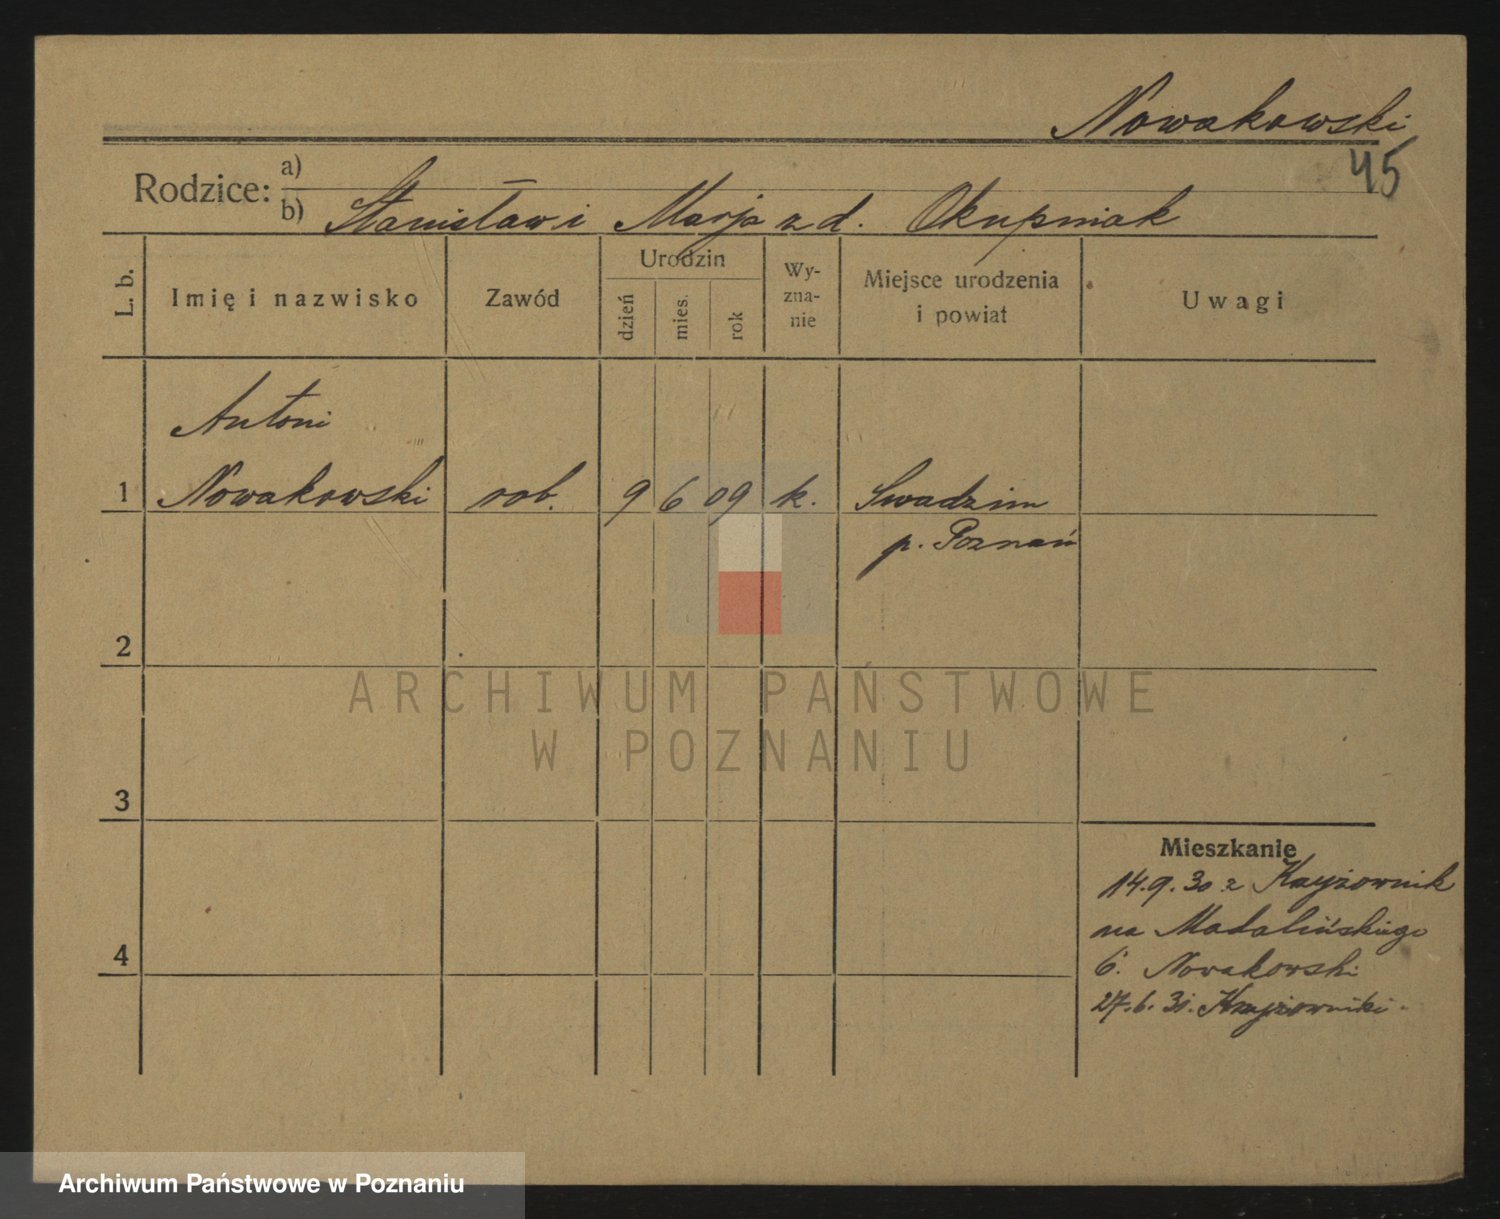 Nowakowski
45
Rodzice: a)
b) Stanisław i Marja z d. Okupniak
L. b.
Imię i nazwisko
Zawód
Urodzin
dzień
mies.
rok
Wy-
zna-
nie
Miejsce urodzenia
i powiat
Uwagi
Antoni
1 Nowakowski rob. 9 6 09 k. Swadzim
p. Poznań
2
ARCHIWUM PAŃSTWOWE
W POZNANIU
3
Mieszkanie
14.9.30 z Krzyżownik
na Madalińskiego
4
6. Nowakowski
27.6.31. Krzyżowniki.
Archiwum Państwowe w Poznaniu